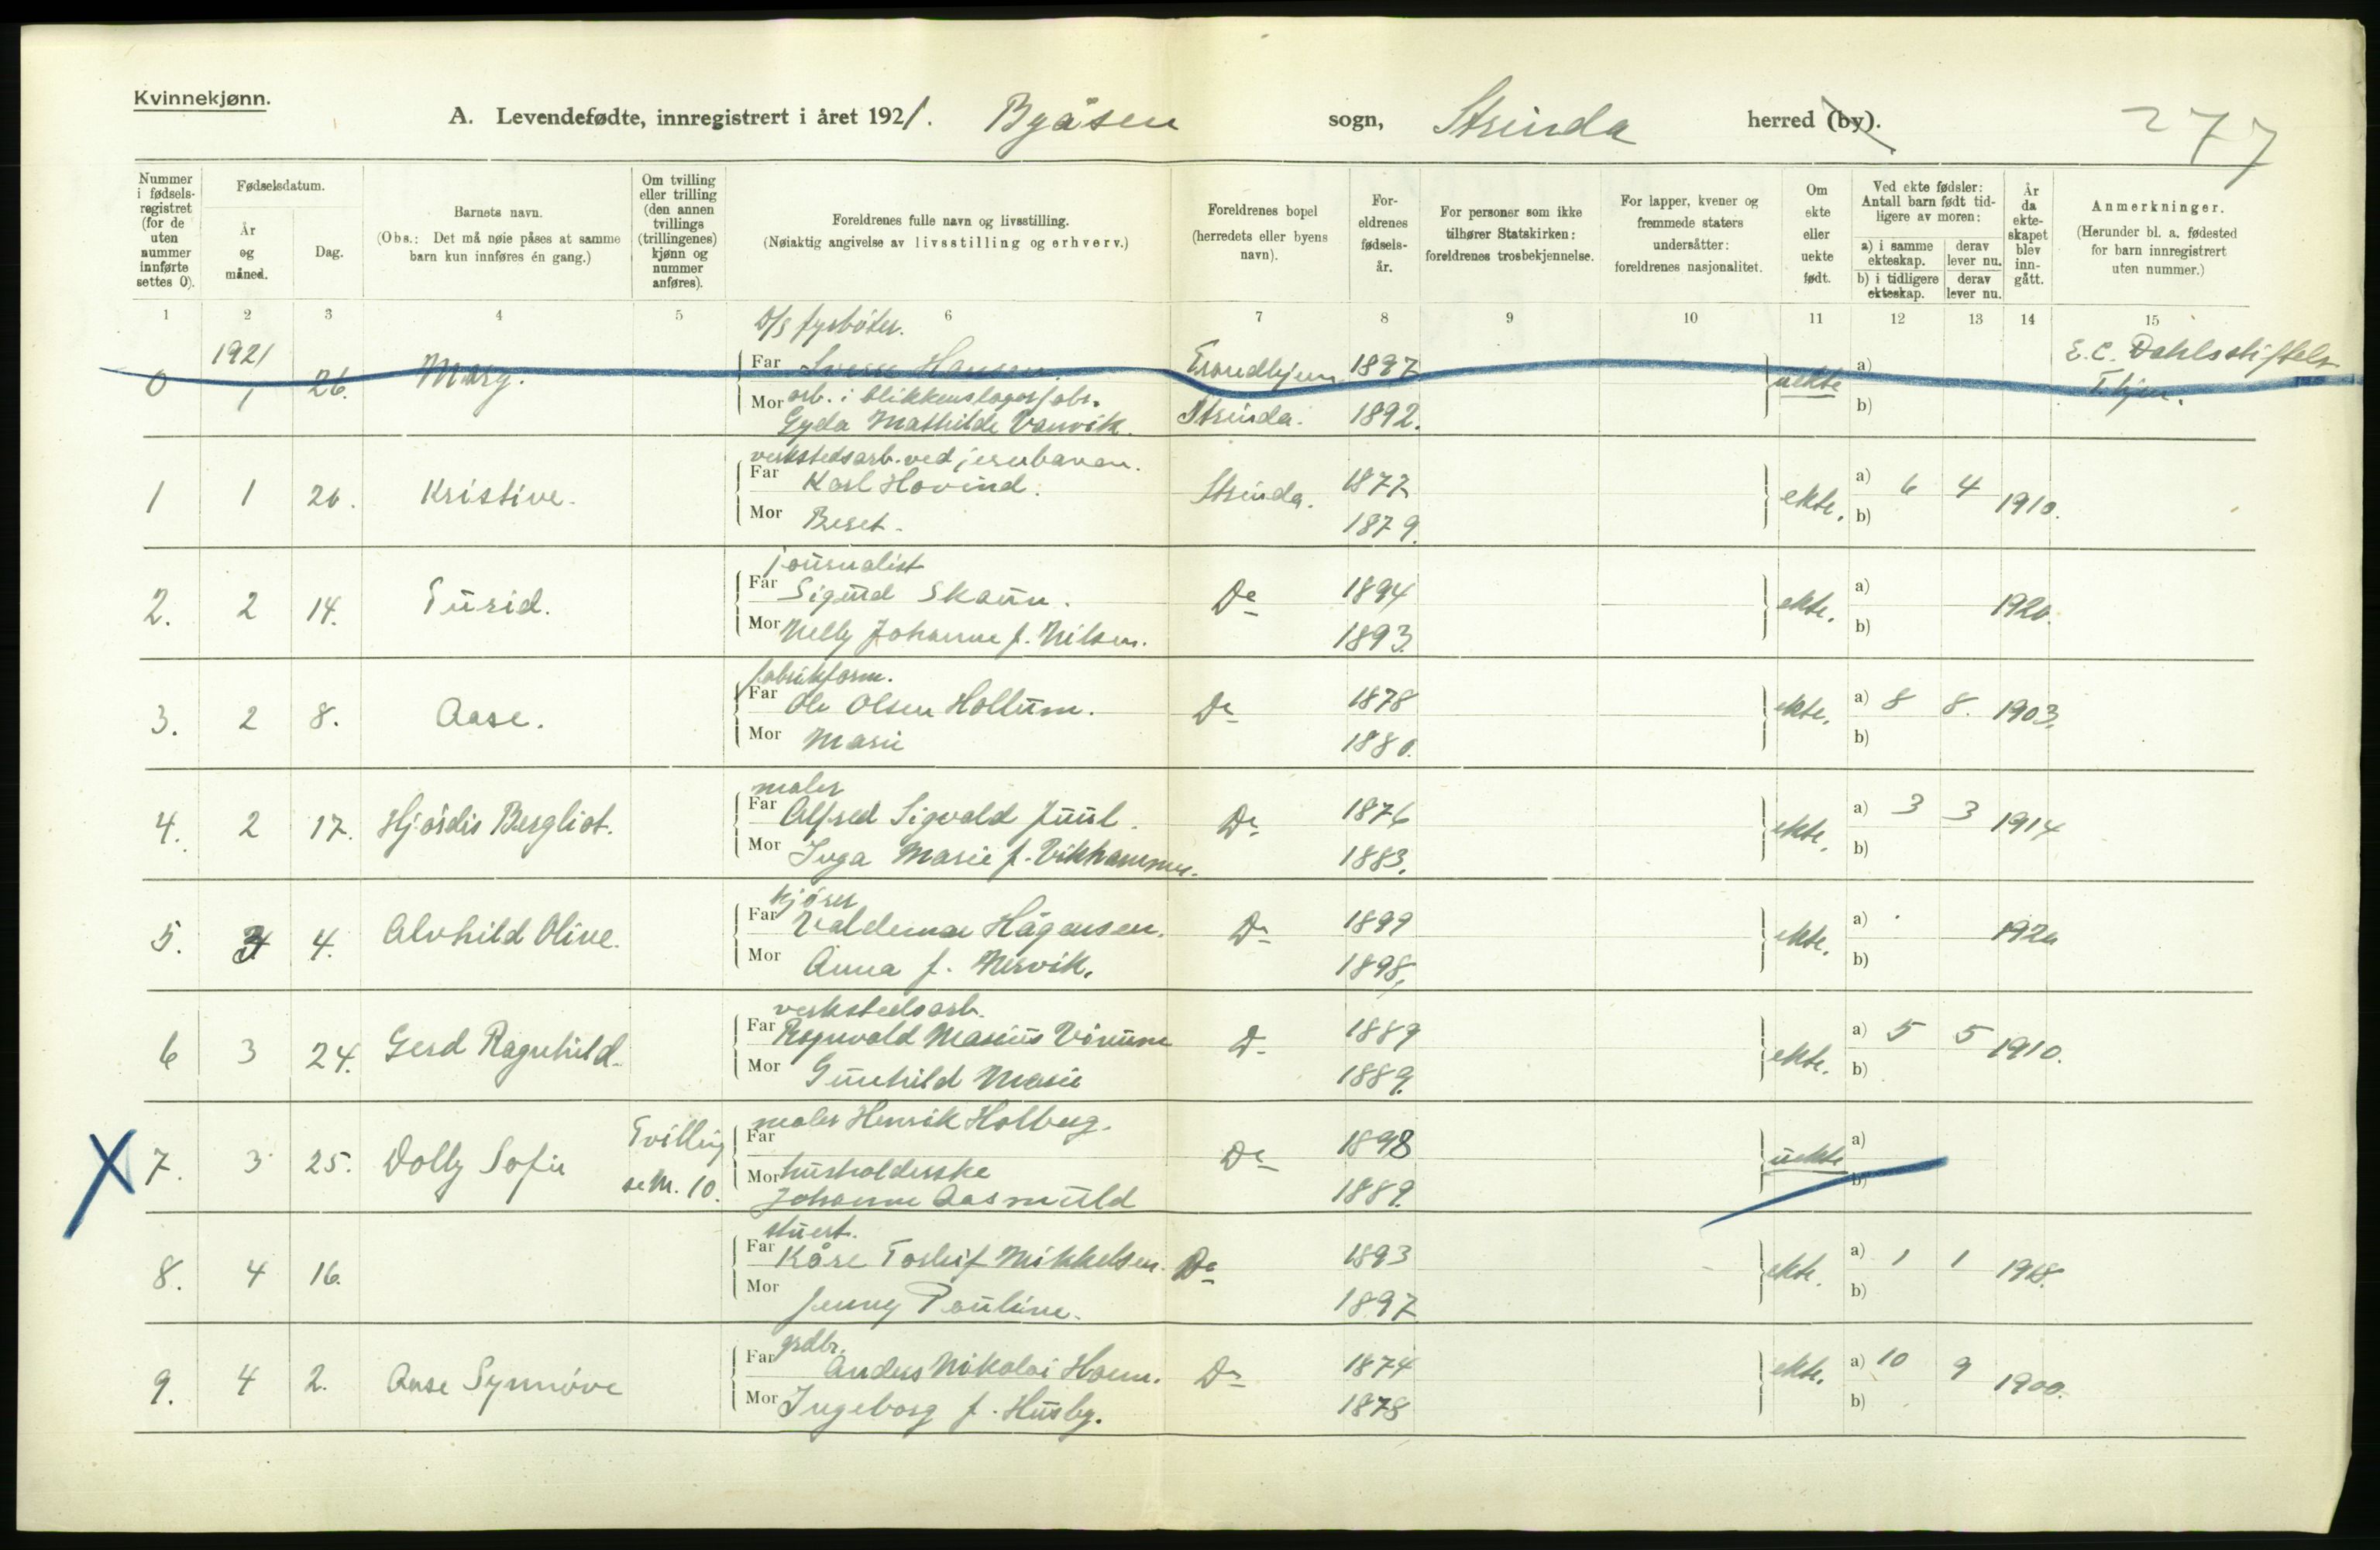 Kvinnekjønn.
A. Levendefødte, innregistrert i året 1921. Byåsen sogn, Strinda herred (by).
277
Nummer i fødsels-registret (for de uten nummer innførte settes 0).
Fødselsdatum.
År og måned.
Dag.
Barnets navn.
(Obs.: Det må nøie påses at samme barn kun innføres én gang.)
Om tvilling eller trilling (den annen tvillings (trillingenes) kjønn og nummer anføres).
Foreldrenes fulle navn og livsstilling.
(Nøiaktig angivelse av livsstilling og erhverv.)
Foreldrenes bopel (herredets eller byens navn).
For-eldrenes fødsels-år.
For personer som ikke tilhører Statskirken: foreldrenes trosbekjennelse.
For lapper, kvener og fremmede staters undersåtter: foreldrenes nasjonalitet.
Om ekte eller uekte født.
Ved ekte fødsler: Antall barn født tid-ligere av moren:
a) i samme ekteskap.
derav lever nu.
b) i tidligere ekteskap.
derav lever nu.
År da ekte-skapet blev inn-gått.
Anmerkninger.
(Herunder bl. a. fødested for barn innregistrert uten nummer.)
1 2 3 4 5 6 7 8 9 10 11 12 13 14 15
D/S fyrbøter.
1921
0 1 26. Mary. Far Hansen. Trondhjem 1887 uekte a) E. C. Dahlsstiftelse
Mor arb. i blikkenslagerfabr. T.hjem.
Gyda Mathilde Vanvik. Strinda. 1892. b)
verkstedsarb. ved jernbanen.
1 1 26. Kristine. Far Karl Hovind. Strinda. 1877 ekte. a) 6 4 1910.
Mor Beret. 1879. b)
journalist
2. 2 14. Turid. Far Sigurd Skaun. Do 1894 ekte. a) 1920.
Mor Nelly Johanne f. Nilsen. 1893. b)
fabrikform.
3. 2 8. Aase. Far Ole Olsen Hollum. Do 1878 ekte. a) 8 8. 1903.
Mor Marie 1880. b)
maler
4. 2 17. Hjørdis Bergliot. Far Alfred Sigvald Juul. Do 1876 ekte. a) 3 3 1914
Mor Inga Marie f. Vikhammer. 1883. b)
kjører
5. 3 4. Alvhild Oline. Far Valdemar Hågensen. Do 1899 ekte. a) 1920
Mor Anna f. Nervik. 1898. b)
verkstedsarb.
6 3 24. Gerd Ragnhild. Far Rognvald Marius Vinum Do 1889 ekte. a) 5 5 1910.
Mor Gunhild Marie 1889. b)
7. 3 25. Dolly Sofie Tvilling se M. 10. Far maler Henrik Holberg. Do 1898 uekte a)
Mor husholderske
Johanne Aasmuld 1889. b)
stuert.
8. 4 16. Far Kåre Torleif Mikkelsen. Do 1893 ekte. a) 1 1 1918.
Mor Jenny Pauline. 1897 b)
grdbr.
9. 4 2. Aase Synnøve Far Anders Nikolai Ham. Do 1874 ekte. a) 10 9 1900.
Mor Ingeborg f. Husby. 1878 b)